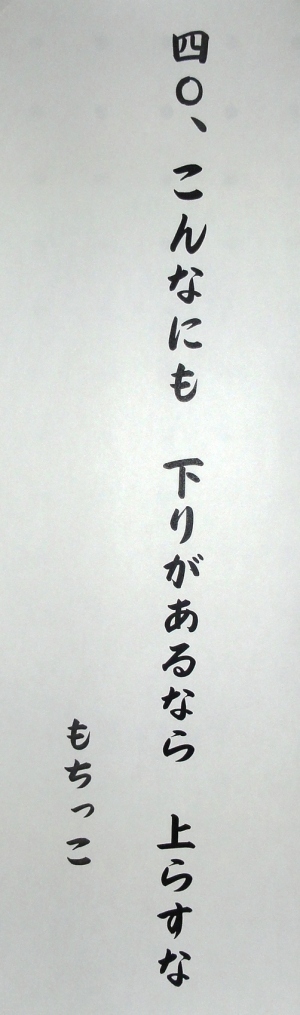 四〇、こんなにも　下りがあるなら　上らすな
もちっこ